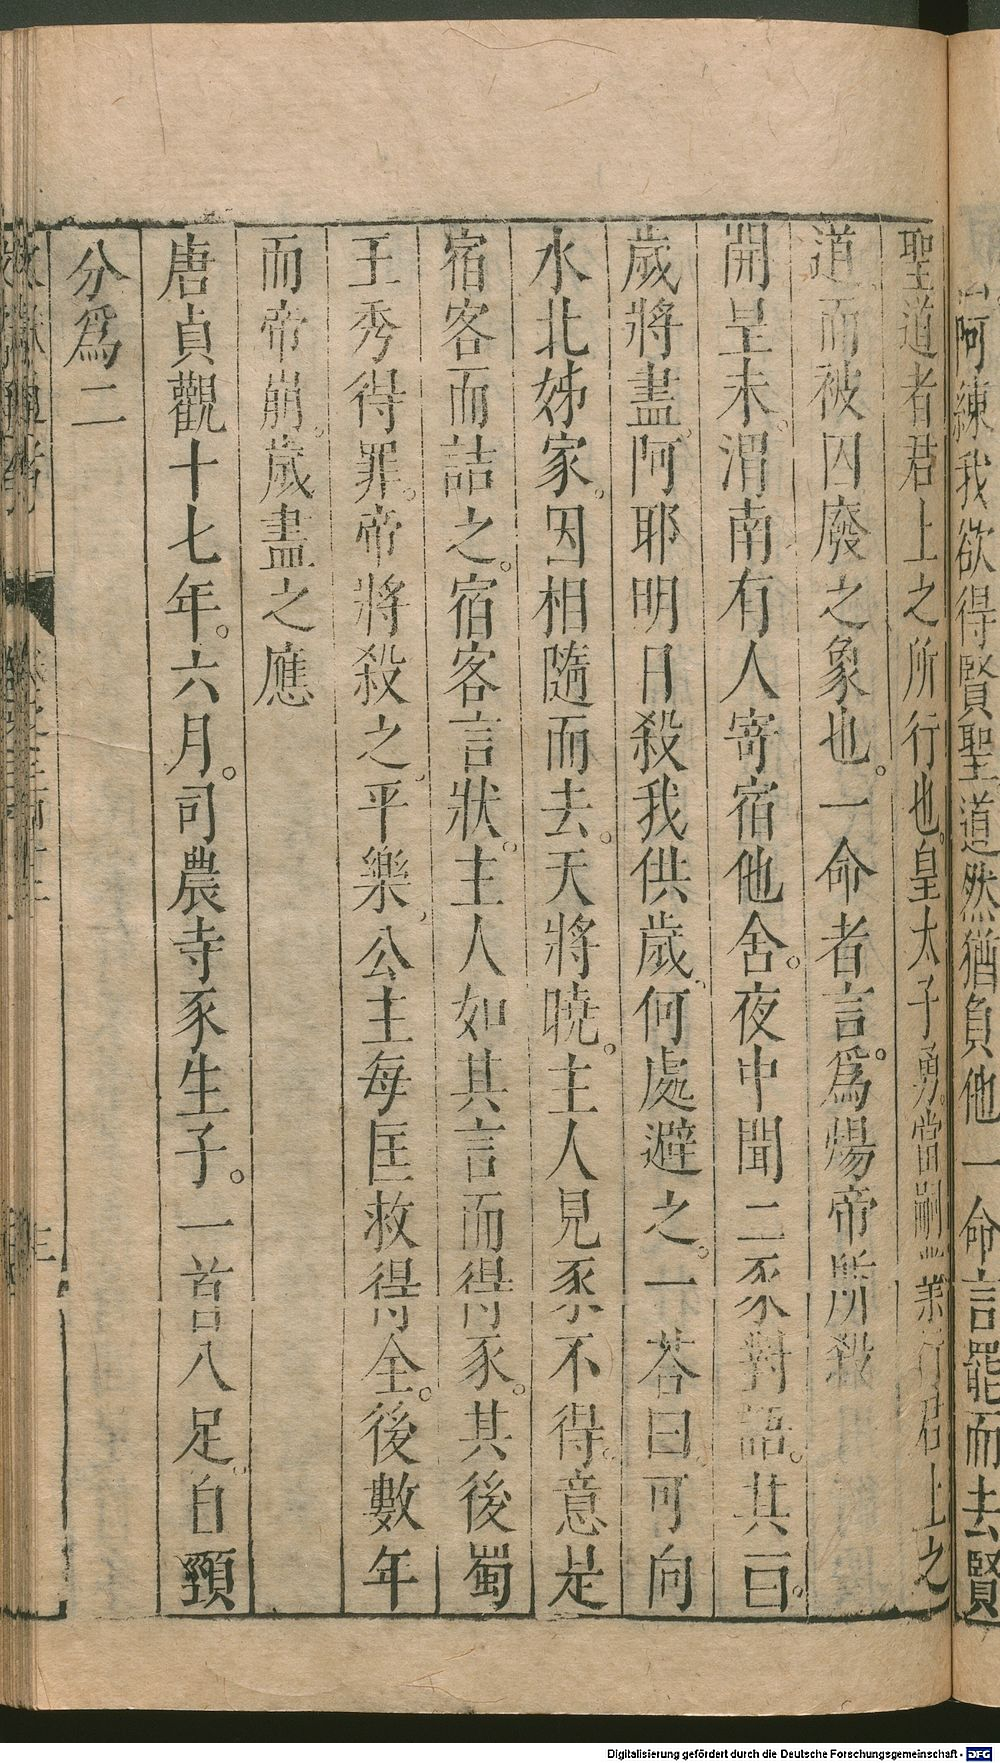 阿練我欲得賢聖道然猶負他一命言罷而去賢
聖道者君上之所行也皇太子勇當嗣業行君上之
道而被囚廢之象也。一命者言。爲煬帝所殺
開皇末。渭南有人寄宿他舍。夜中聞二豕對語。其一曰。
歲將盡。阿耶明日殺我供歲。何處避之。一荅曰。可向
水北姊家。因相隨而去。天將曉。主人見豕不得。意是
宿客而詰之。宿客言狀。主人如其言而得豕。其後蜀
王秀得罪。帝將殺之。平樂公主每匡救得全。後數年
而帝崩。歲盡之應
唐貞觀十七年。六月。司農寺豕生子。一首八足。自頸
分爲二
三
Digitalisierung gefördert durch die Deutsche Forschungsgemeinschaft - DFG